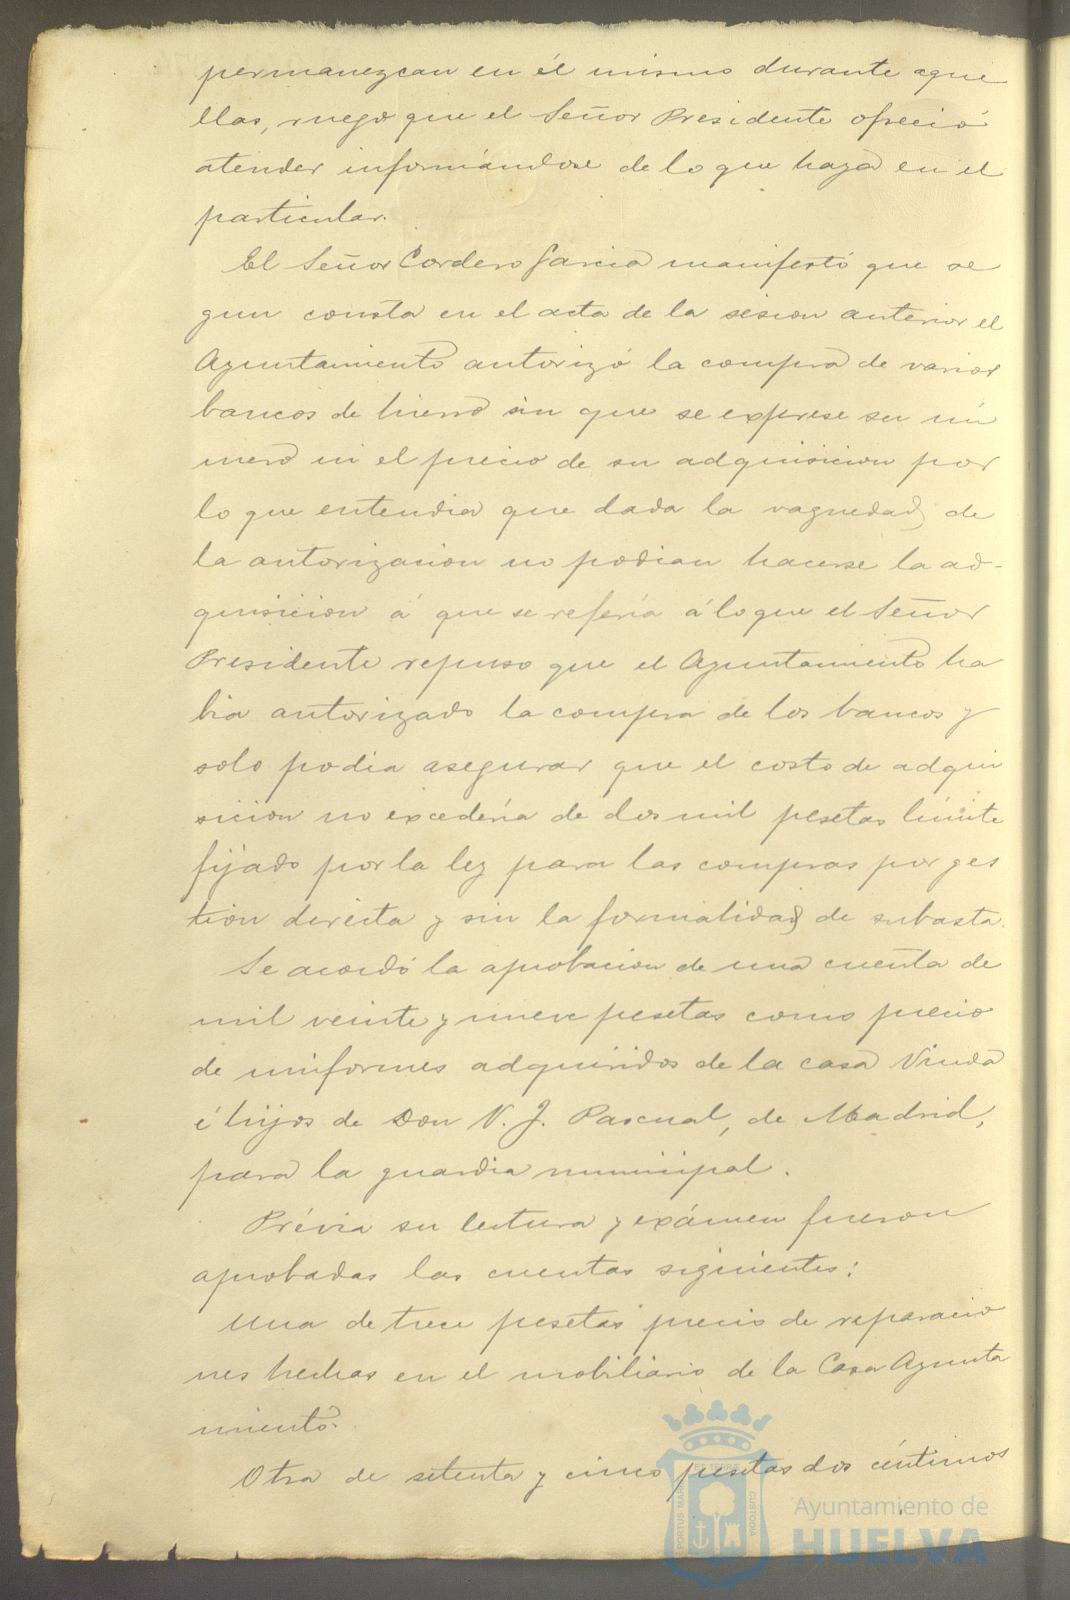 permanezcan en él mismo durante aque
llas, ruego que el Señor Presidente ofreció
atender informándose de lo que haya en el
particular.
El Señor Cordero Garcia manifestó que se
gun consta en el acta de la sesion anterior el
Ayuntamiento autorizó la compra de varios
bancos de hierro sin que se exprese su nú
mero ni el precio de su adquisicion por
lo que entendia que dada la vaguedad de
la autorizacion no podian hacerse la ad-
quisicion á que se refería á lo que el Señor
Presidente repuso que el Ayuntamiento ha
bia autorizado la compra de los bancos y
solo podia asegurar que el costo de adqui
sicion no excedería de dos mil pesetas límite
fijado por la ley para las compras por ges
tion directa y sin la formalidad de subasta.
Se acordó la aprobacion de una cuenta de
mil veinte y nueve pesetas como precio
de uniformes adquiridos de la casa Viuda
é hijos de Don V. J. Pascual, de Madrid,
para la guardia municipal.
Prévia su lectura y exámen fueron
aprobadas las cuentas siguientes:
Una de trece pesetas precio de reparacio
nes hechas en el mobiliario de la Casa Ayunta
miento.
Otra de setenta y cinco pesetas dos céntimos
PORTUS MARIS ET TERRAE CUSTODIA
Ayuntamiento de
HUELVA